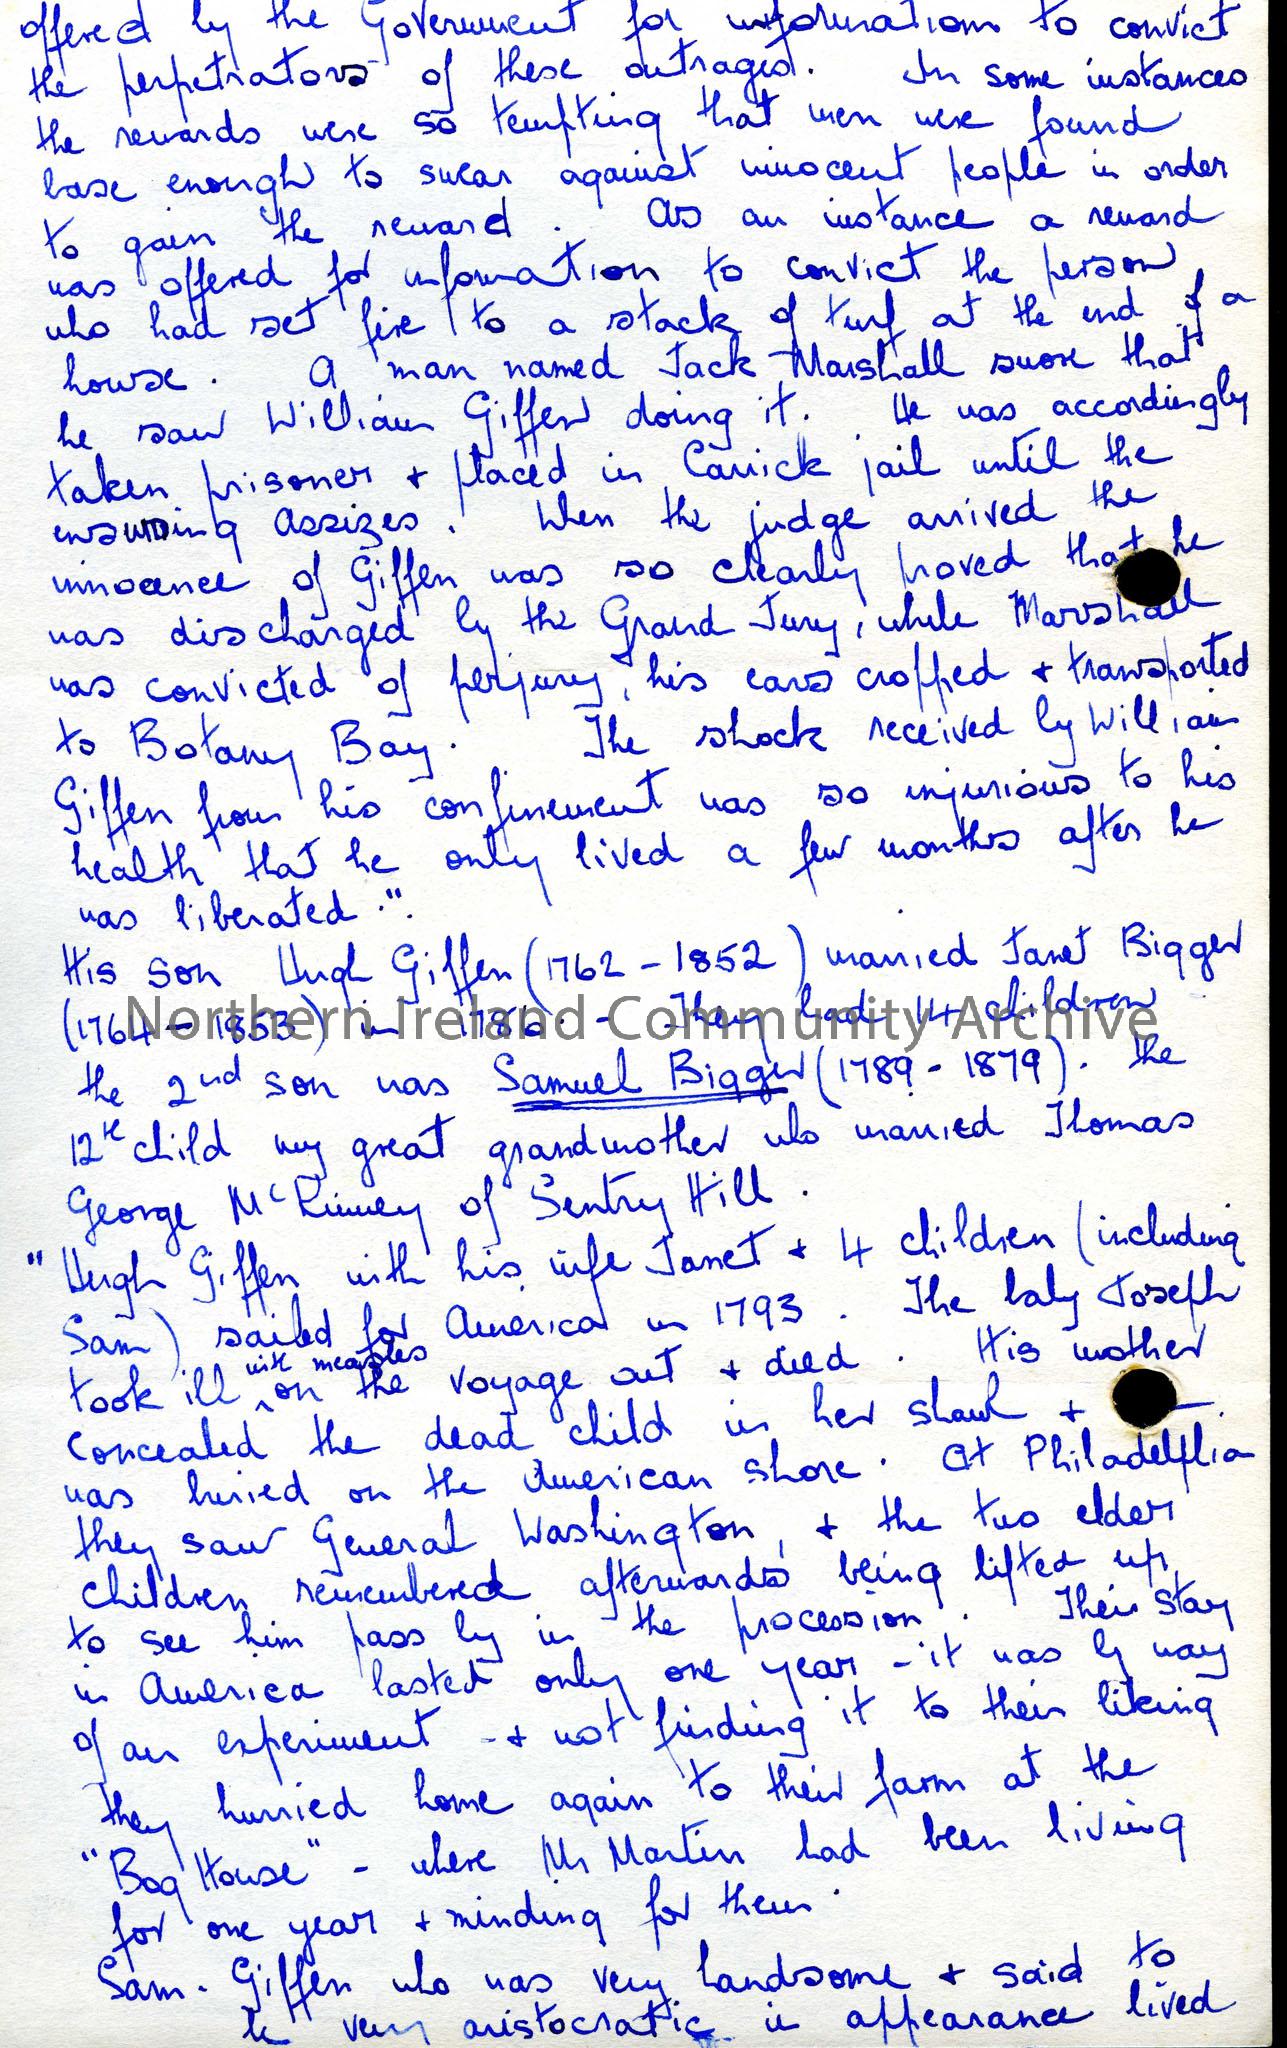 offered by the Government for information to convict
the perpetrators of these outrages. In some instances
the rewards were so tempting that men were found
base enough to swear against innocent people in order
to gain the reward. As an instance a reward
was offered for information to convict the person
who had set fire to a stack of turf at the end of a
house. A man named Jack Marshall swore that
he saw William Giffen doing it. He was accordingly
taken prisoner + placed in Carrick jail until the
ensuing Assizes. When the judge arrived the
innocence of Giffen was so clearly proved that he
was discharged by the Grand Jury, while Marshall
was convicted of perjury, his ears cropped + transported
to Botany Bay. The shock received by William
Giffen from his confinement was so injurious to his
health that he only lived a few months after he
was liberated.".
His son Hugh Giffen (1762 - 1852) married Janet Bigger
(1764 - 1853) in 1786. - They had 14 children
Northern Ireland Community Archive
the 2nd son was Samuel Bigger (1789 - 1879). the
12th child my great grandmother who married Thomas
George McKinney of Sentry Hill.
"Hugh Giffen with his wife Janet + 4 children (including
Sam) sailed for America in 1793. The baby Joseph
took ill with measles on the voyage out + died. His mother
concealed the dead child in her shawl +
was buried on the American shore. At Philadelphia
they saw General Washington, + the two elder
children remembered afterwards being lifted up
to see him pass by in the procession. Their stay
in America lasted only one year - it was by way
of an experiment - + not finding it to their liking
they hurried home again to their farm at the
"Bog House" - where Mr Martin had been living
for one year + minding for them.
Sam. Giffen who was very handsome + said to
be very aristocratic in appearance lived